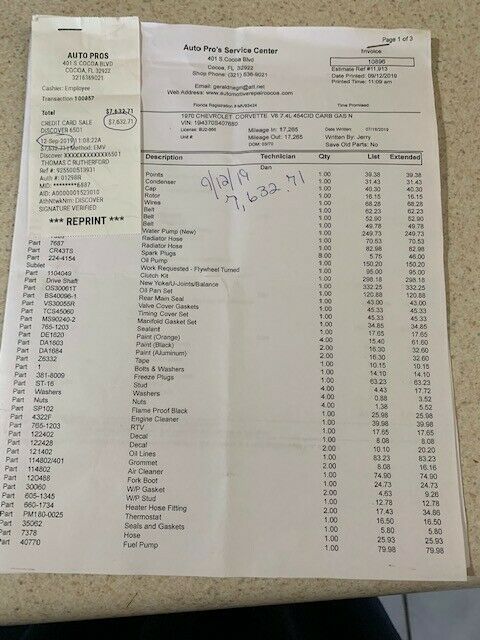 AUTO PROS
401 S COCOA BLVD
COCOA, FL 32922
3216369021
Cashier: Employee
Transaction 100857
Total $7,632.71
CREDIT CARD SALE $7,632.71
DISCOVER 6501
12-Sep-2019 11:08:22A
$7,632.71 Method: EMV
Discover XXXXXXXXXXXX6501
THOMAS C RUTHERFORD
Ref #: 925500513931
Auth #: 01298R
MID: ********6887
AID: A0000001523010
AthNtwkNm: DISCOVER
SIGNATURE VERIFIED
*** REPRINT ***
Page 1 of 3
Auto Pro's Service Center
401 S.Cocoa Blvd
Cocoa, FL 32922
Shop Phone: (321) 636-9021
Invoice
10896
Estimate Ref #11,913
Date Printed: 09/12/2019
Printed Time: 11:09 am
Email: geraldnegri@att.net
Web Address: www.automotiverepaircocoa.com
Florida Registration #
Time Promised:
1970 CHEVROLET CORVETTE V8 7.4L 454CID CARB GAS N
VIN: 194370S407680
License: BU2-866
Unit #:
Mileage In: 17,265
Mileage Out: 17,265
Date Written:
Written By: Jerry
Save Old Parts: No
Description Technician Qty List Extended
Dan
9/12/19
7,632.71
Points 1.00 39.38 39.38
Condenser 1.00 31.43 31.43
Cap 1.00 40.30 40.30
Rotor 1.00 16.15 16.15
Wires 1.00 68.28 68.28
Belt 1.00 62.23 62.23
Belt 1.00 52.90 52.90
Belt 1.00 49.78 49.78
Water Pump (New) 1.00 249.73 249.73
Radiator Hose 1.00 70.53 70.53
Part 7687 Radiator Hose 1.00 82.98 82.98
Part CR43TS Spark Plugs 8.00 5.75 46.00
Part 224-4154 Oil Pump 1.00 150.20 150.20
Sublet Work Requested - Flywheel Turned 1.00 95.00 95.00
Part 1104049 Clutch Kit 1.00 318.15 318.15
Part Drive Shaft New Yoke/U-Joints/Balance 1.00 332.25 332.25
Part OS30061T Oil Pan Set 1.00 120.88 120.88
Part BS40096-1 Rear Main Seal 1.00 43.00 43.00
Part VS30055R Valve Cover Gaskets 1.00 45.33 45.33
Part TCS45060 Timing Cover Set 1.00 45.33 45.33
Part MS90240-2 Manifold Gasket Set 1.00 34.85 34.85
Part 765-1203 Sealant 1.00 17.65 17.65
Part DE1620 Paint (Orange) 4.00 15.40 61.60
Part DA1603 Paint (Black) 2.00 16.30 32.60
Part DA1684 Paint (Aluminum) 2.00 16.30 32.60
Part Z6332 Tape 1.00 10.15 10.15
Part 1 Bolts & Washers 1.00 14.10 14.10
Part 381-8009 Freeze Plugs 1.00 63.23 63.23
Part ST-16 Stud 4.00 4.43 17.72
Part Washers Washers 4.00 0.88 3.52
Part Nuts Nuts 4.00 1.38 5.52
Part SP102 Flame Proof Black 1.00 25.98 25.98
Part 4322F Engine Cleaner 1.00 39.98 39.98
Part 765-1203 RTV 1.00 17.65 17.65
Part 122402 Decal 1.00 8.08 8.08
Part 122428 Decal 2.00 10.10 20.20
Part 121402 Oil Lines 1.00 83.23 83.23
Part 114802/401 Grommet 2.00 8.08 16.16
Part 114802 Air Cleaner 1.00 74.90 74.90
Part 120488 Fork Boot 1.00 24.73 24.73
Part 30060 W/P Gasket 2.00 4.63 9.26
Part 605-1345 W/P Stud 1.00 12.78 12.78
Part 660-1734 Heater Hose Fitting 2.00 17.43 34.86
Part PM180-0025 Thermostat 1.00 16.50 16.50
Part 35062 Seals and Gaskets 1.00 5.80 5.80
Part 7378 Hose 1.00 25.93 25.93
Part 40770 Fuel Pump 1.00 79.98 79.98